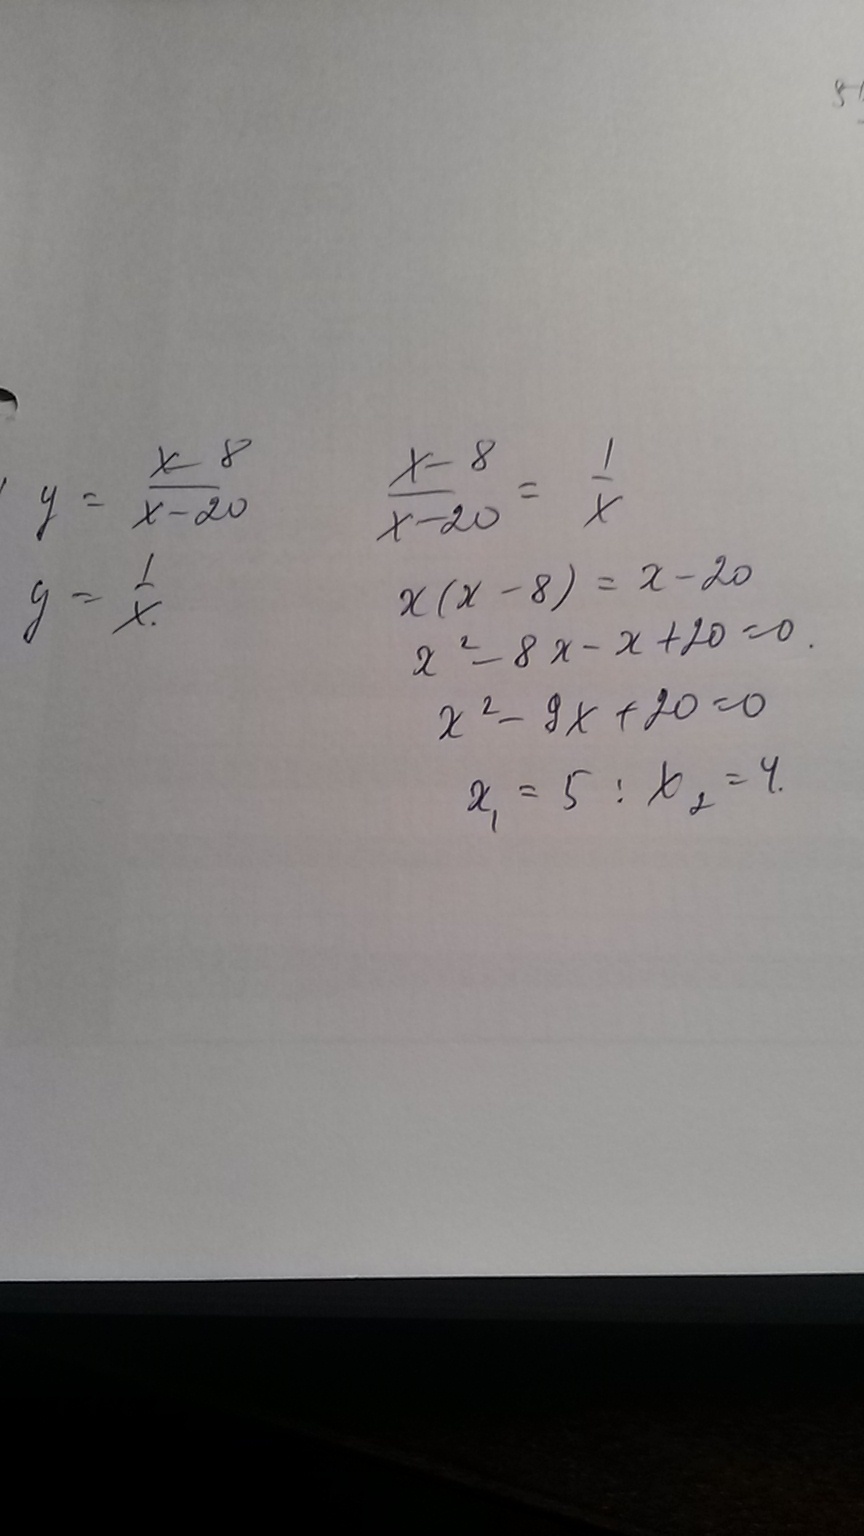 y = (x-8)/(x-20)
y = 1/x.
(x-8)/(x-20) = 1/x
x(x-8) = x-20
x²-8x-x+20=0.
x²-9x+20=0
x₁ = 5 : x₂ = 4.